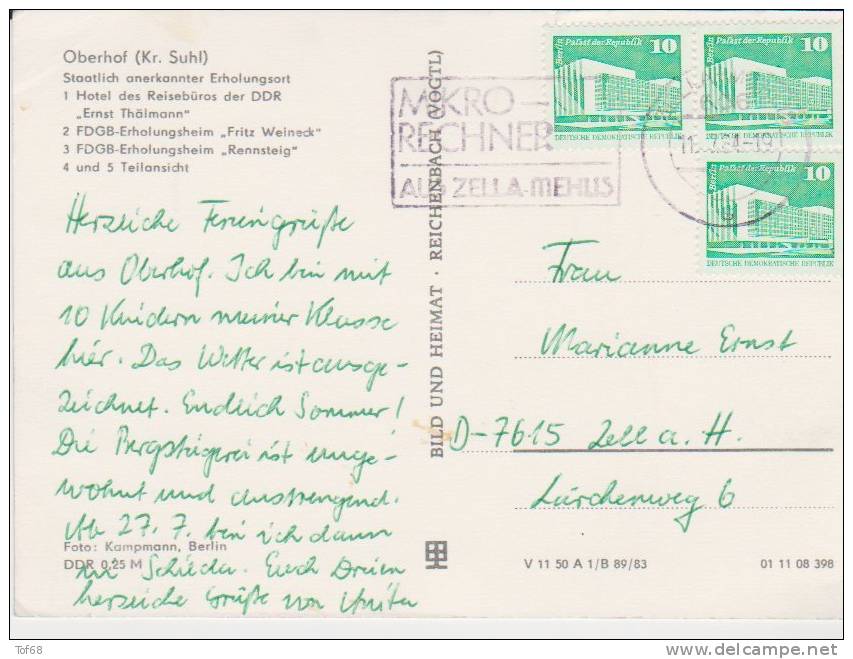 Oberhof (Kr. Suhl)
Staatlich anerkannter Erholungsort
1 Hotel des Reisebüros der DDR
„Ernst Thälmann“
2 FDGB-Erholungsheim „Fritz Weineck“
3 FDGB-Erholungsheim „Rennsteig“
4 und 5 Teilansicht
Herzliche Feriengrüße
aus Oberhof. Ich bin mit
10 Kindern meiner Klasse
hier. Das Wetter ist ausge-
zeichnet. Endlich Sommer!
Die Bergsteigerei ist unge-
wohnt und anstrengend.
Ab 27. 7. bin ich dann
in Euch Dreien
herzliche Grüße von Anita
Foto: Kampmann, Berlin
DDR 0,25 M
BILD UND HEIMAT · REICHENBACH (VOGTL)
MIKRO-
RECHNER
AUS ZELLA-MEHLIS
Berlin Palast der Republik 10
DEUTSCHE DEMOKRATISCHE REPUBLIK
Berlin Palast der Republik 10
DEUTSCHE DEMOKRATISCHE REPUBLIK
Berlin Palast der Republik 10
DEUTSCHE DEMOKRATISCHE REPUBLIK
Frau
Marianne Ernst
D-7615 Zell a. H.
Lärchenweg 6
V 11 50 A 1/B 89/83
01 11 08 398
Tof68
www.delcampe.net